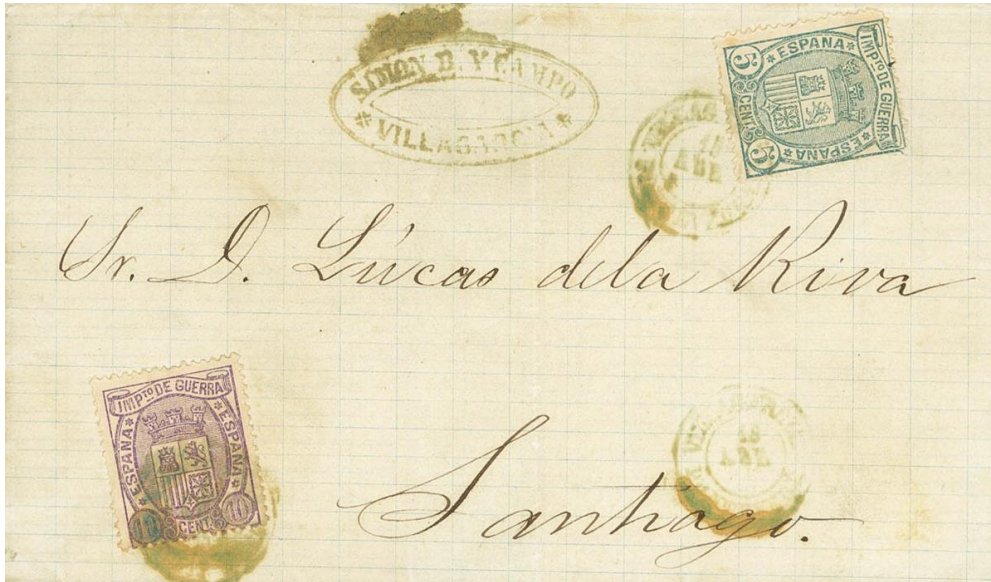 SIMON D. Y CAMPO
* VILLAGARCIA *
IMPto DE GUERRA
* ESPANA *
* ESPANA *
5 CENTs 5
ABR
Sr. D. Lúcas dela Riva
IMPto DE GUERRA
* ESPANA *
* ESPANA *
10 CENTs 10
ABR
Santiago.